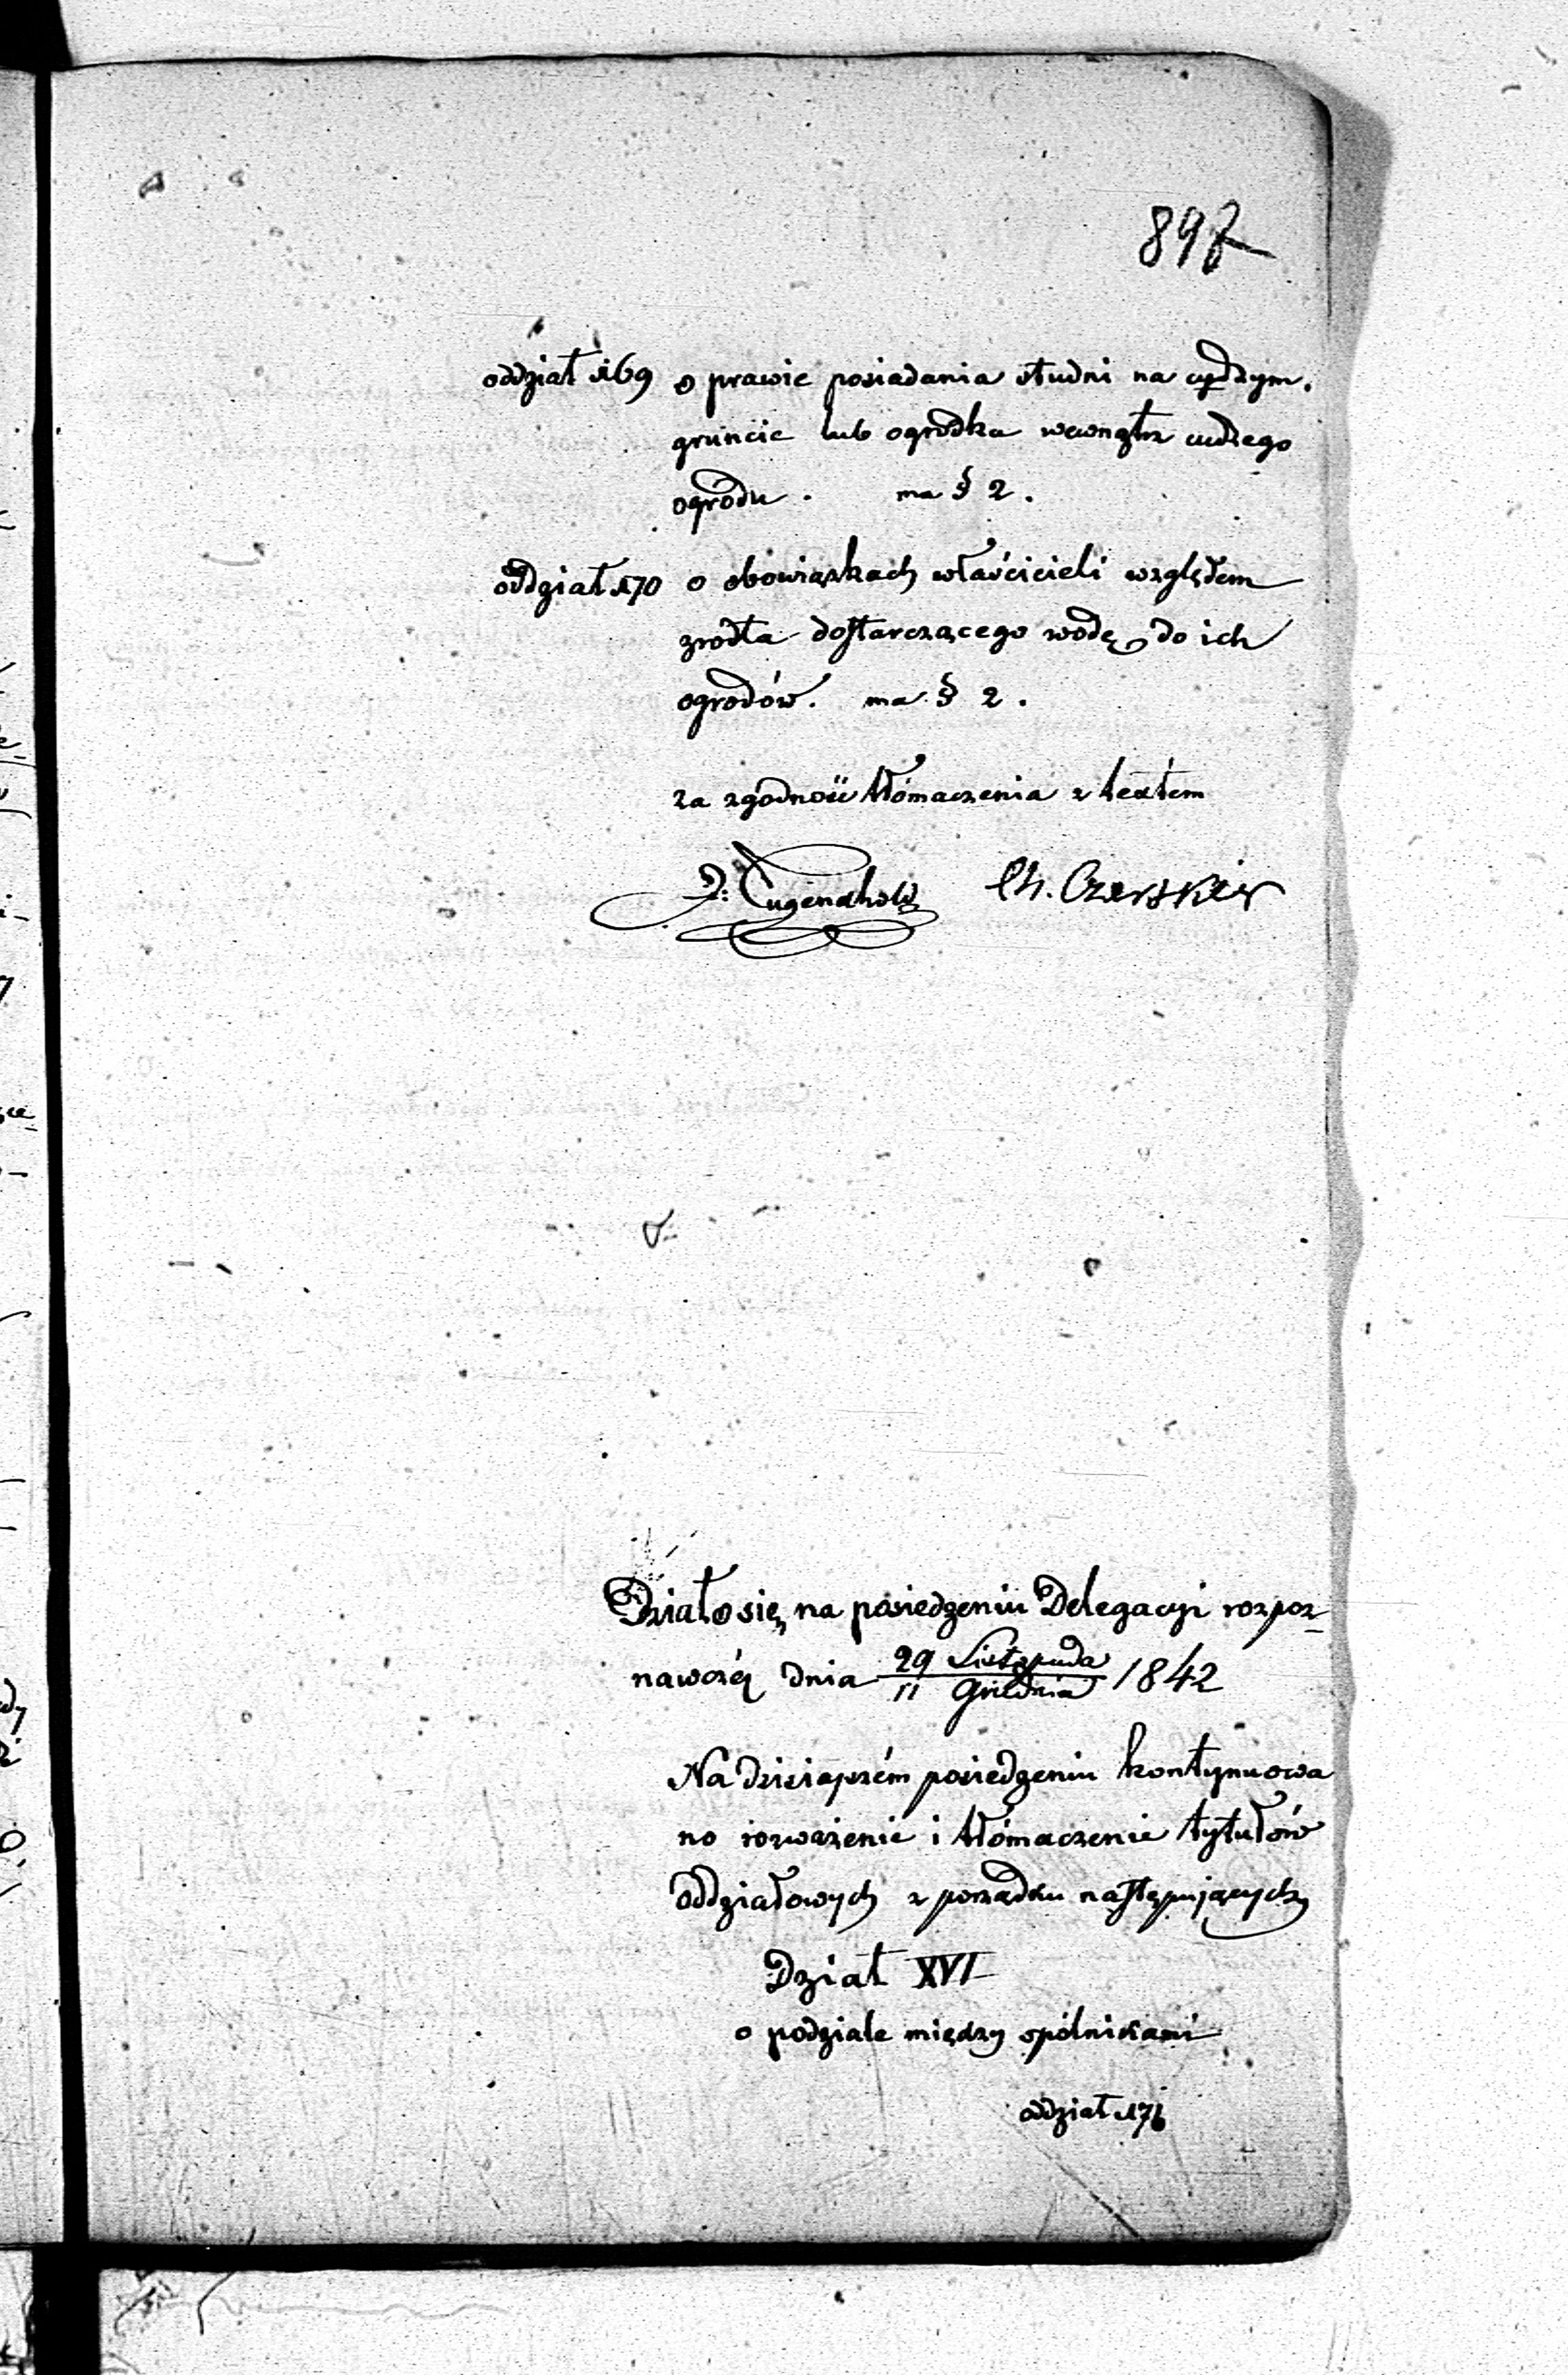 897
oddział 169 o prawie posiadania studni na cudzym
gruncie lub ogrodka wewnątrz cudzego
ogrodu. ma § 2.
oddział 170 o obowiązkach właścicieli względem
zrodła dostarczącego wodę do ich
ogrodów. ma § 2.
za zgodność tłómaczenia z textem
J. Tugendhold Ch. Czerskier
Działo się na posiedzeniu Delegacyi rozpoz-
nawczéj dnia 29 Listopada / 11 Grudnia 1842
Na dzisiajszém posiedzeniu kontynuowa
no rozważenie i tłómaczenie tytułów
oddziałowych z porządku następujących
Dział XVI
o podziale między spólnikami
oddział 171